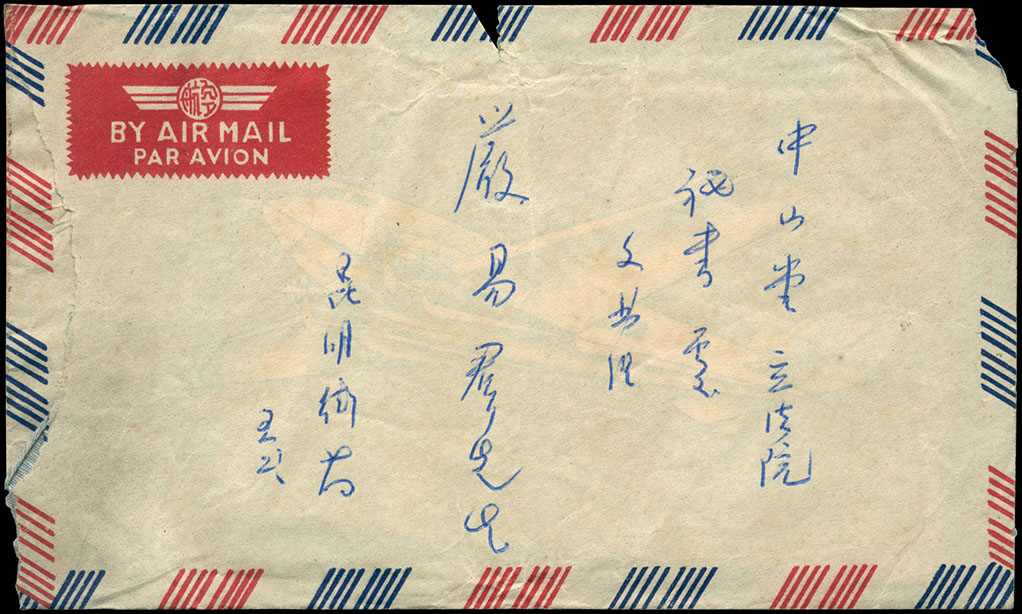 航空
BY AIR MAIL
PAR AVION
中山堂 立法院
秘書處
文書科
嚴易羣先生
昆明街
王